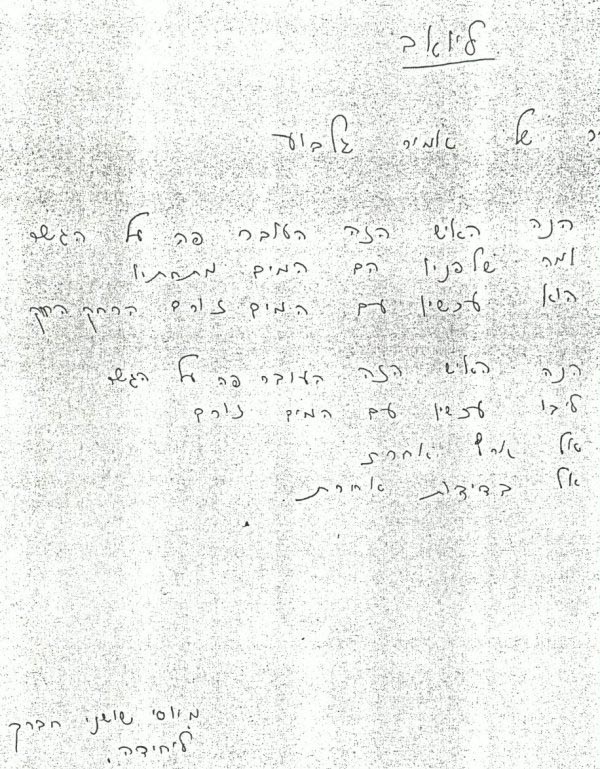 ליואב
של אמיר גלבוע
הנה האיש הזה העובר פה על הגשר
ומה שלפניו הם המים מתחתיו
הוא עכשיו עם המים זורם הרחק הרחק
הנה האיש הזה העובר פה על הגשר
ליבו עכשיו עם המים זורם
אל ארץ אחרת
אל בדידות אחרת
מיוסי שושני חברך
ליחידה.